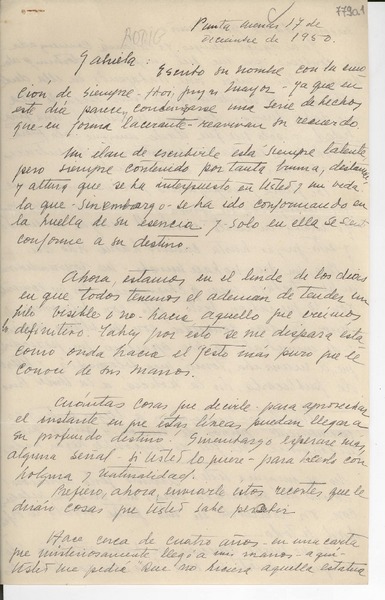 779a1
Punta Arenas 17 de
diciembre de 1950.
Gabriela: Escribo su nombre con la emo-
ción de siempre - hoy mayor - ya que en
este día parece condensarse una serie de hechos
que - en forma lacerante - reavivan su recuerdo.
Mi élan de escribirle está siempre latente
pero siempre contenido por tanta bruma, distancia
y altura que se ha interpuesto en Usted y mi vida
la que - sin embargo - se ha ido conformando en
la huella de su esencia y solo en ella se siente
conforme a su destino.
Ahora, estamos en el linde de los días
en que todos tenemos el ademán de tender un
hilo visible o no - hacia aquello que creíamos
definitivo. Y ahí por esto se me dispara ésta
como onda hacia el gesto más puro que le
conocí de sus manos.
Cuántas cosas que decirle para aprovechar
el instante en que estas líneas puedan llegar a
su profundo destino! Sin embargo esperaré más
alguna señal - si Usted lo quiere - para hacerlo con
holgura y naturalidad.
Prefiero, ahora, enviarle estos recortes que le
dirán cosas que Usted sabe percibir
Hace cerca de cuatro años - en una carta
que misteriosamente llegó a mis manos - aquí
Usted me pedía que no hiciera aquella estatua